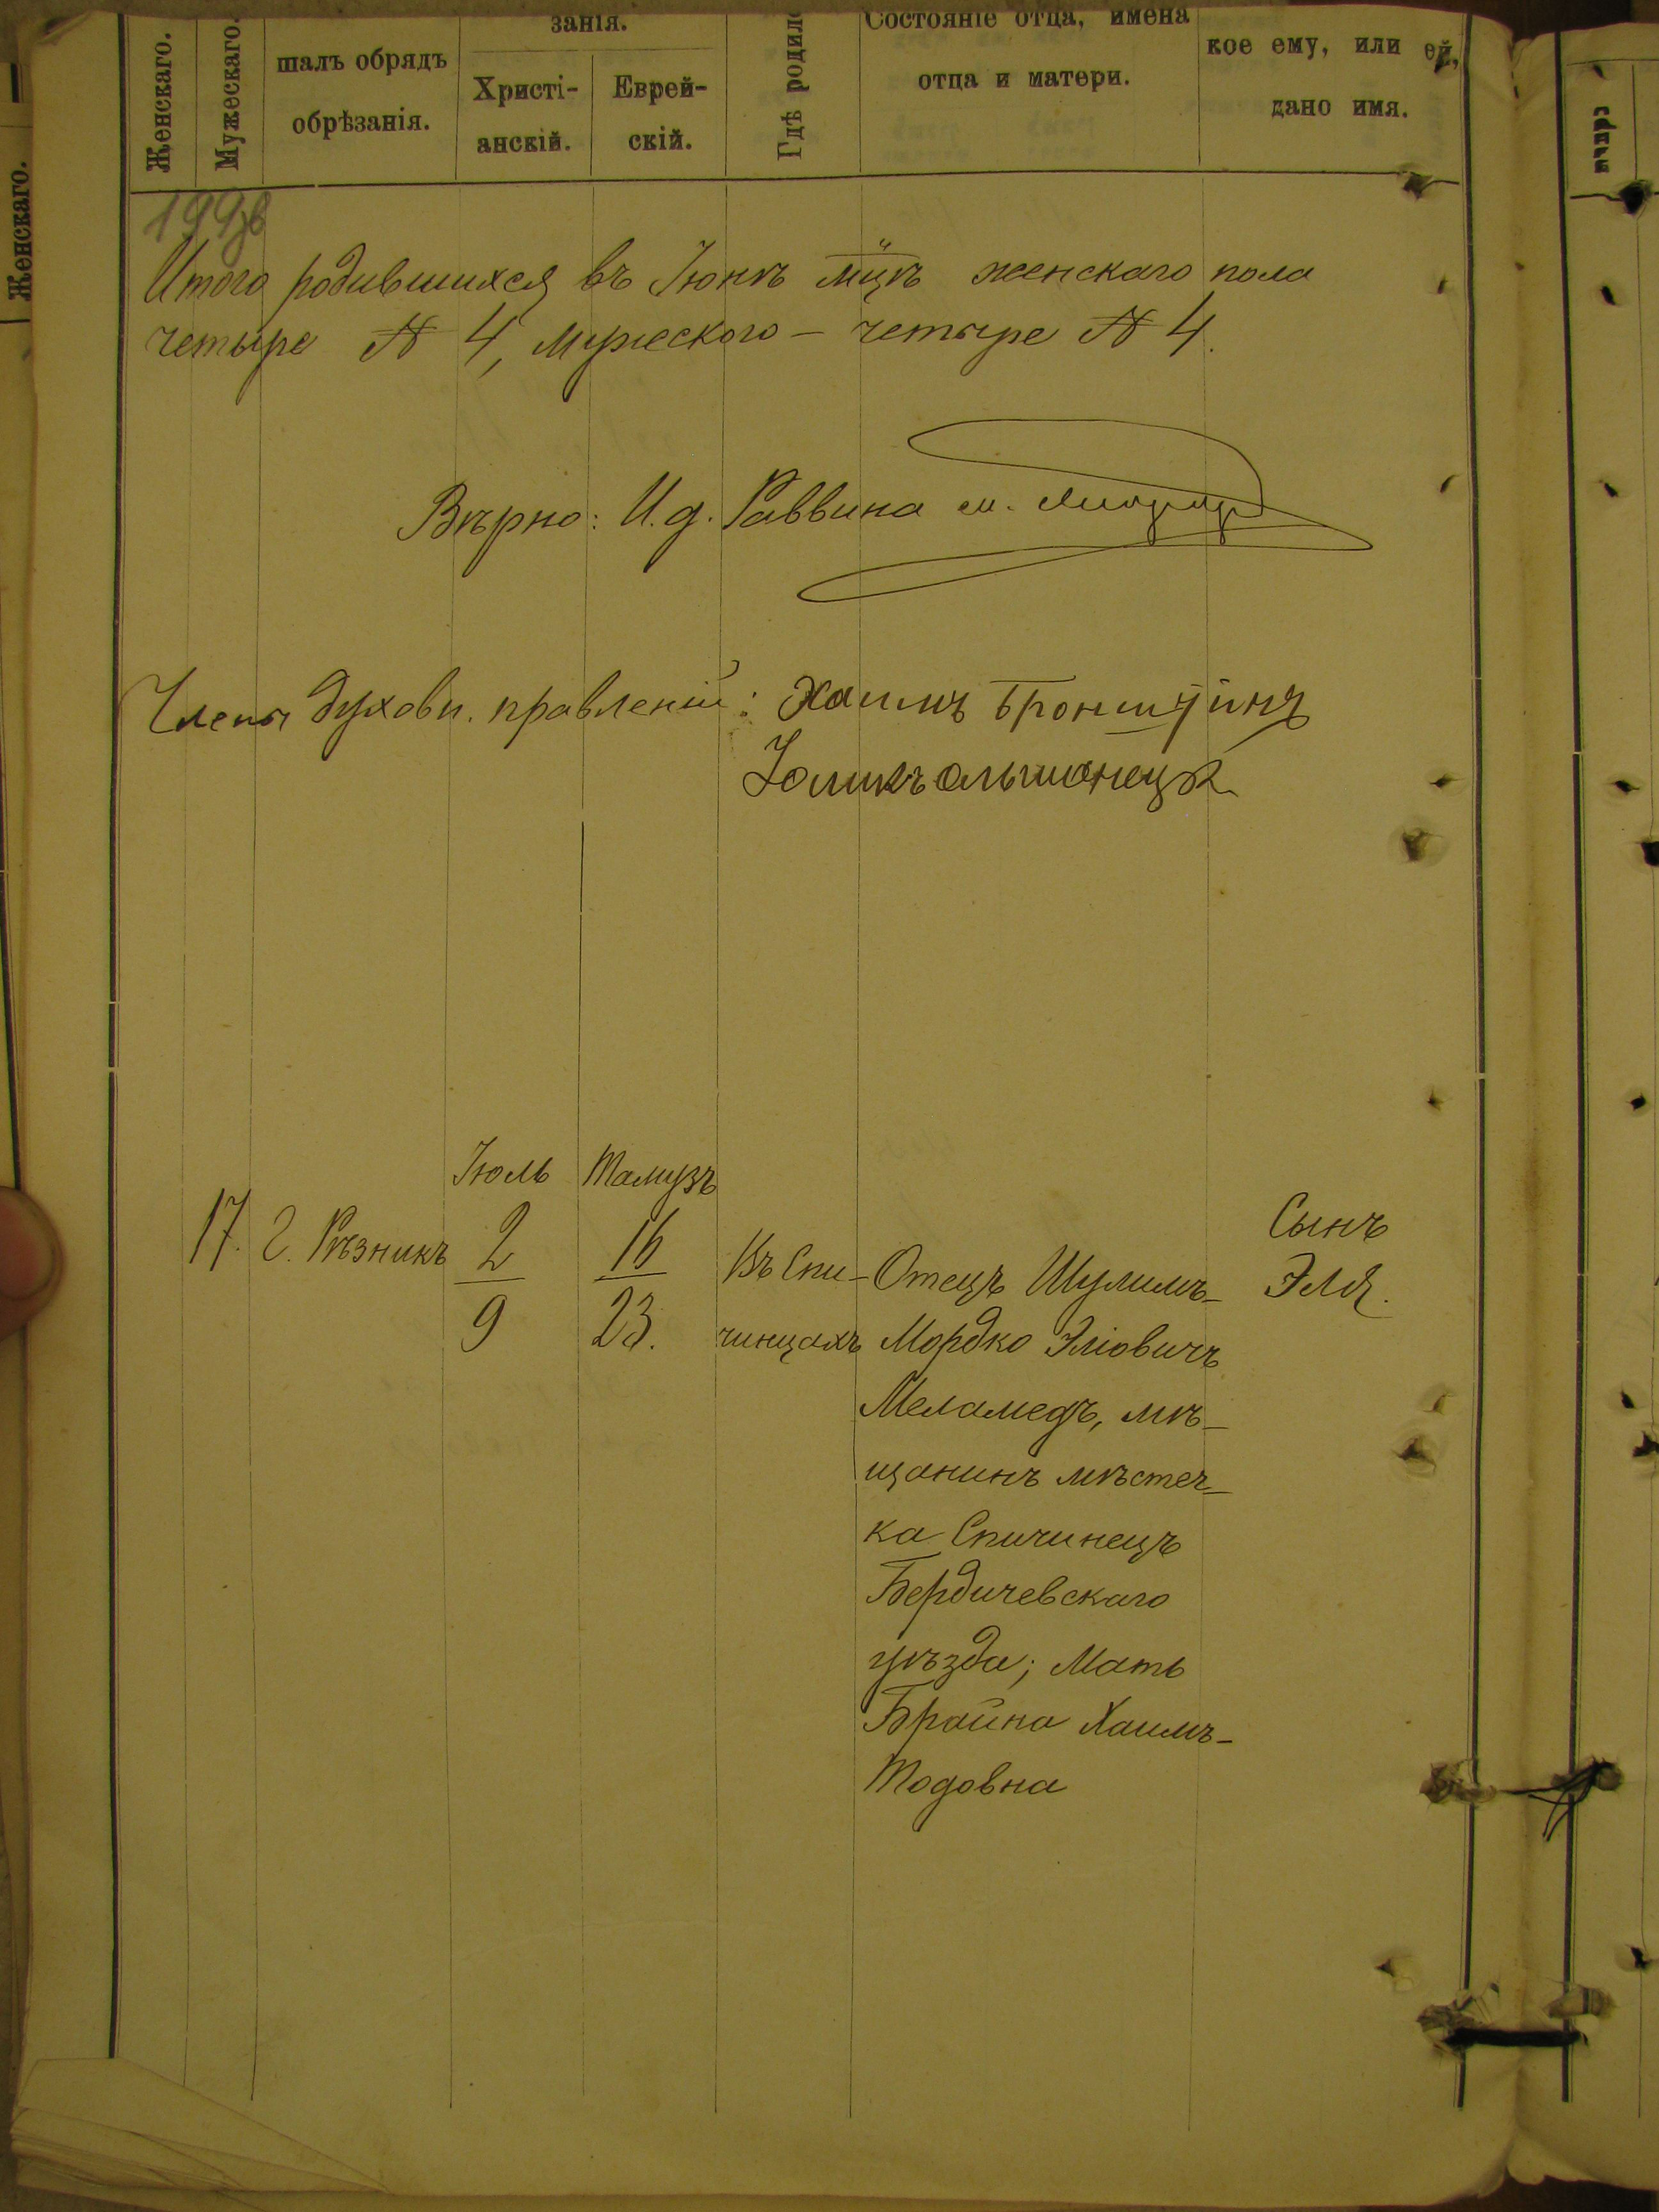 Женскаго.
Женскаго.
Мужескаго.
шалъ обрядъ
обрѣзанія.
занія.
Христі-
анскій.
Еврей-
скій.
Гдѣ родил
Состояніе отца, имена
отца и матери.
кое ему, или ей,
дано имя.
Итого родившихся въ Іюнѣ мцѣ женскаго пола
четыре № 4, мужеского – четыре № 4.
Вѣрно: И. д. Раввина
Члены духовн. правленій: Хаимъ Бронштйинъ
Іюль Тамузъ
17. Г. Рѣзникъ 2 16
9 23.
Въ Спи-
чинцахъ
Отецъ Шулимъ-
Мордко Эліовичъ
Меламедъ, мѣ-
щанинъ мѣстеч-
ка Спичинецъ
Бердичевскаго
уѣзда; Мать
Брайна Хаимъ-
Тодовна
Сынъ
Эля.